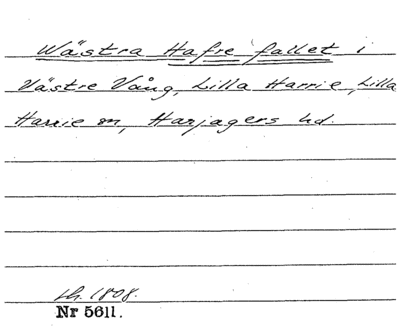 Wästra Hafre fallet i
Västre Vång, Lilla Harrie, Lilla
Harrie sn, Harjagers hd.
ch. 1808.
Nr 5611.